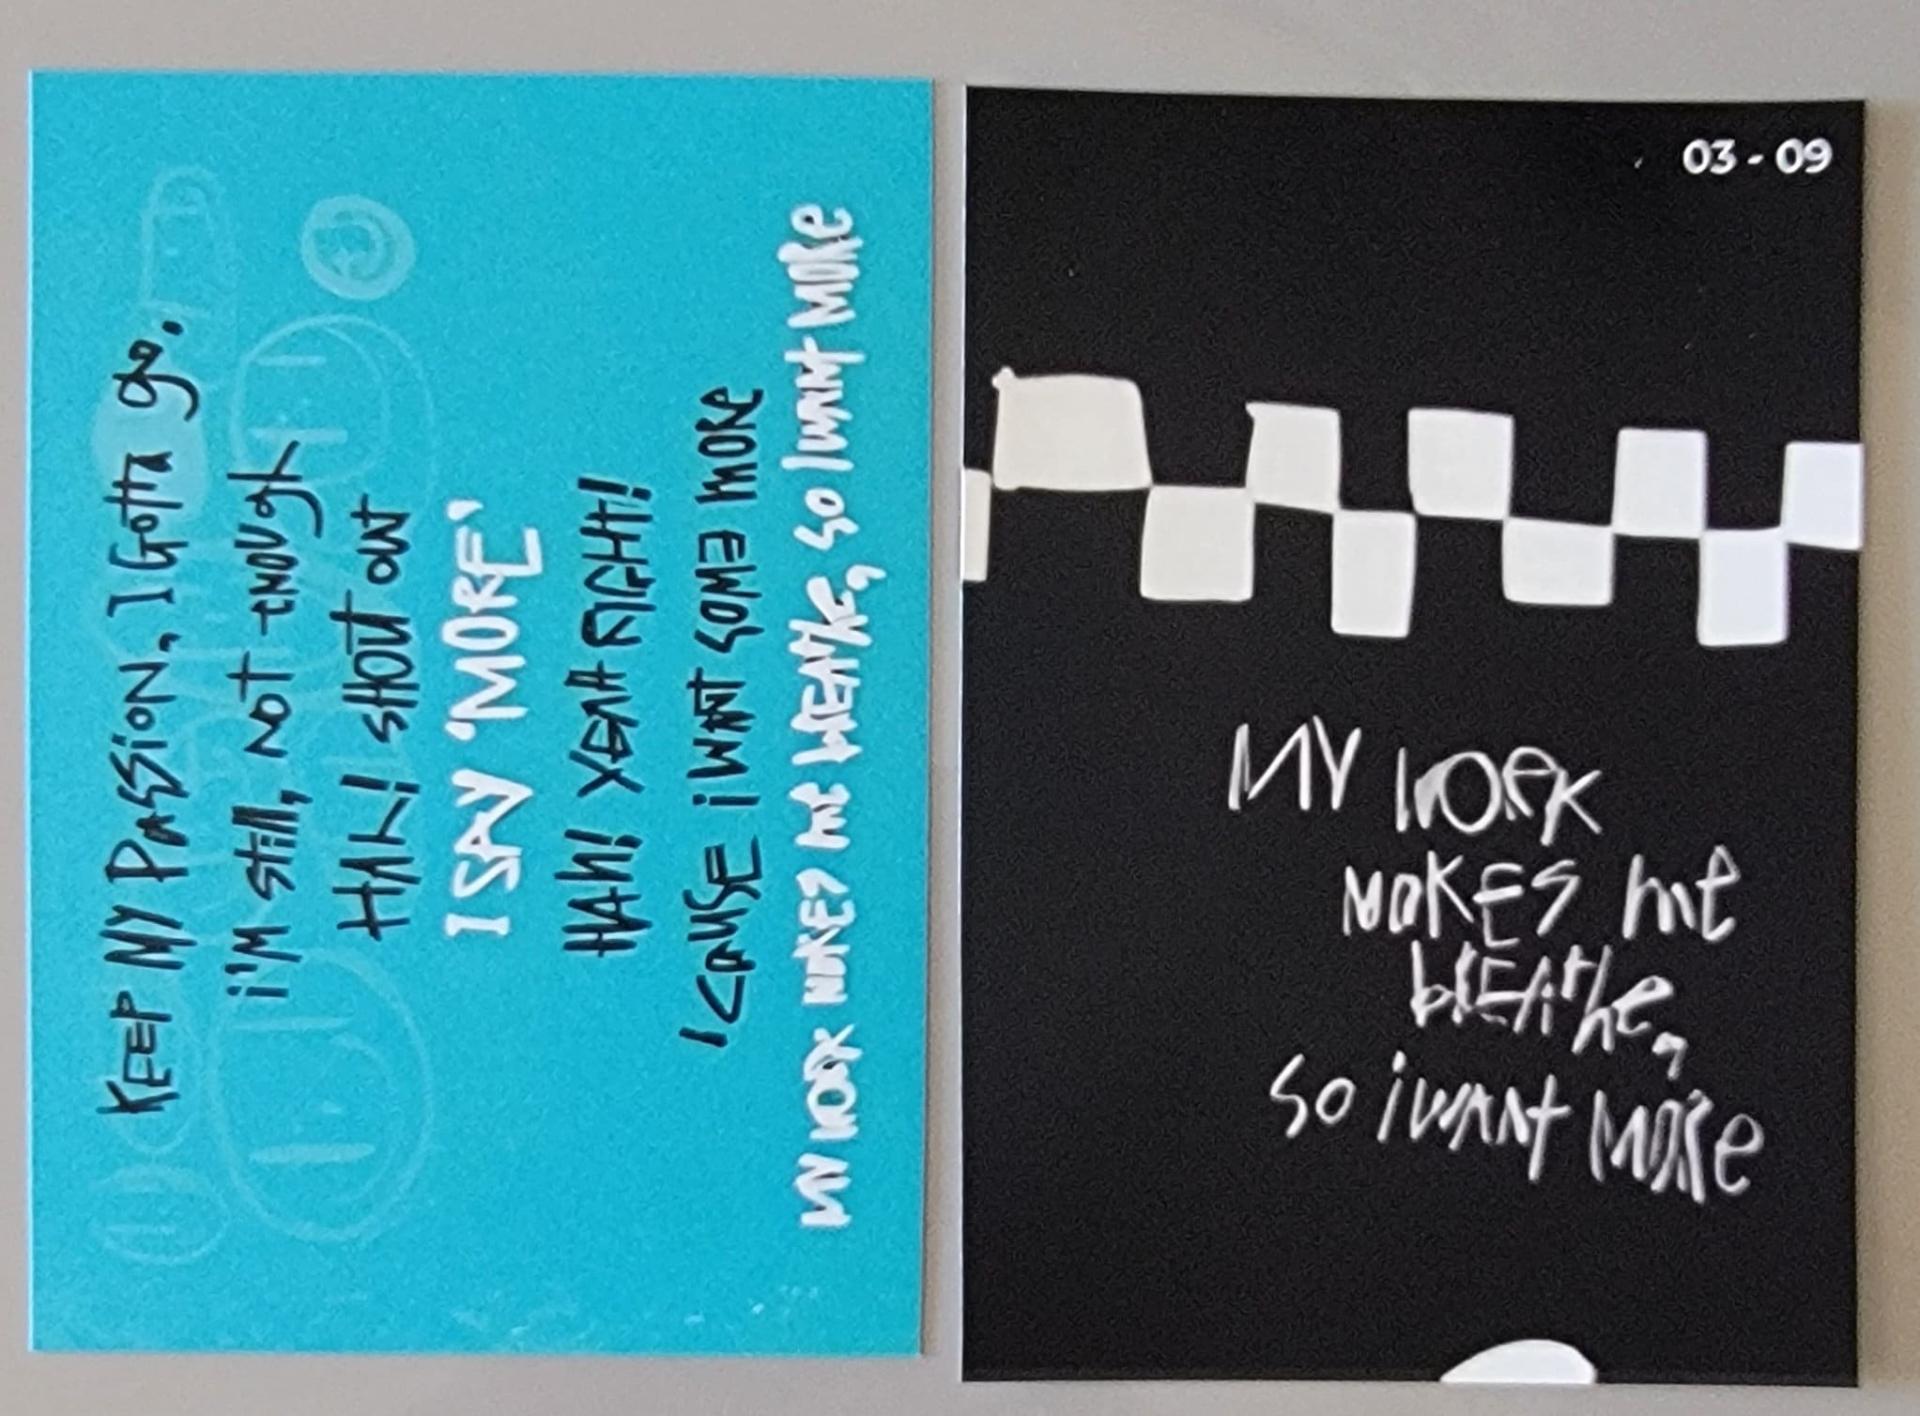 KEEP MY PASSION, I GOTTA go.
i'M still, NOT ENOUGH
HAH! SHOUT OUT
I SAY 'MORE'
HAH! YEAH RIGHT!
'CAUSE i WANT SOME MORE
MY WORK MAKES ME BREATHE, SO I WANT MORE
03 - 09
MY WORK
MAKES ME
bREATHE,
SO i WANT MORE